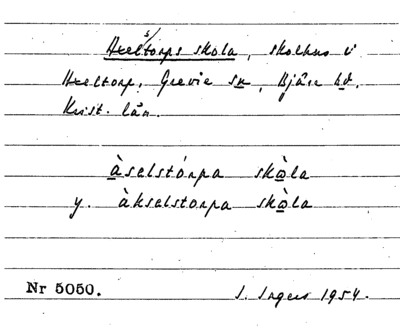 Axelstorps skola, skolhus i
Axeltorp, Grevie sn, Bjäre hd.
Krist. län.
àselstórpa skòla
y. àkselstorpa skòla
Nr 5050.
I. Ingers 1954.